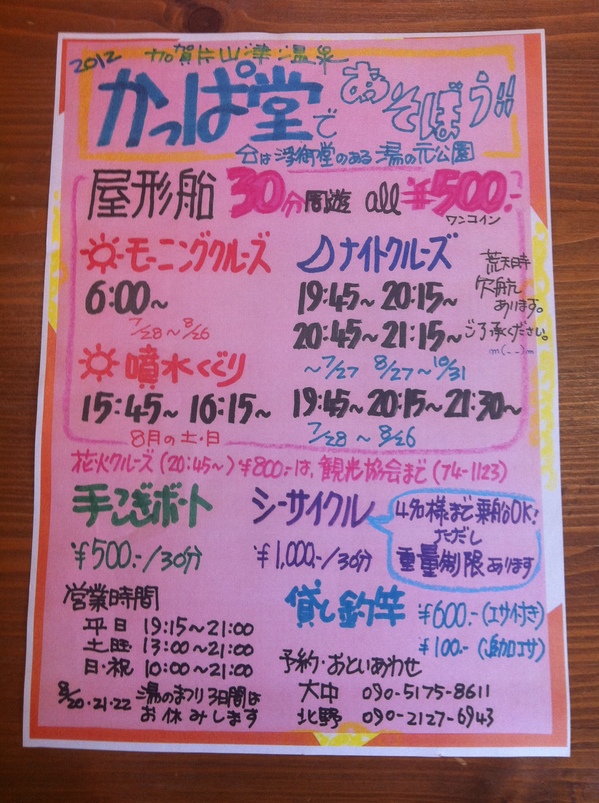 2012 加賀片山津温泉
かっぱ堂であそぼう!!
会は浮御堂のある湯の元公園
屋形船 30分周遊 all ¥500.-
ワンコイン
モーニングクルーズ
6:00~
7/28~8/26
噴水くぐり
15:45~ 16:15~
8月の土・日
ナイトクルーズ
19:45~ 20:15~
20:45~ 21:15~
~7/27 8/27~10/31
19:45~ 20:15~ 21:30~
7/28~8/26
荒天時
欠航
あります。
ご了承ください。
m(_ _)m
花火クルーズ(20:45~)¥800-は、観光協会まで(74-1123)
手こぎボート
¥500-/30分
シーサイクル
¥1,000-/30分
4名様まで乗船OK!
ただし
重量制限あります
営業時間
平日 19:15~21:00
土曜 13:00~21:00
日・祝 10:00~21:00
8/20・21・22 湯のまつり3日間は
お休みします
貸し釣竿 ¥600-(エサ付き)
¥100-(追加エサ)
予約・おといあわせ
大中 090-5175-8611
北野 090-2127-6943